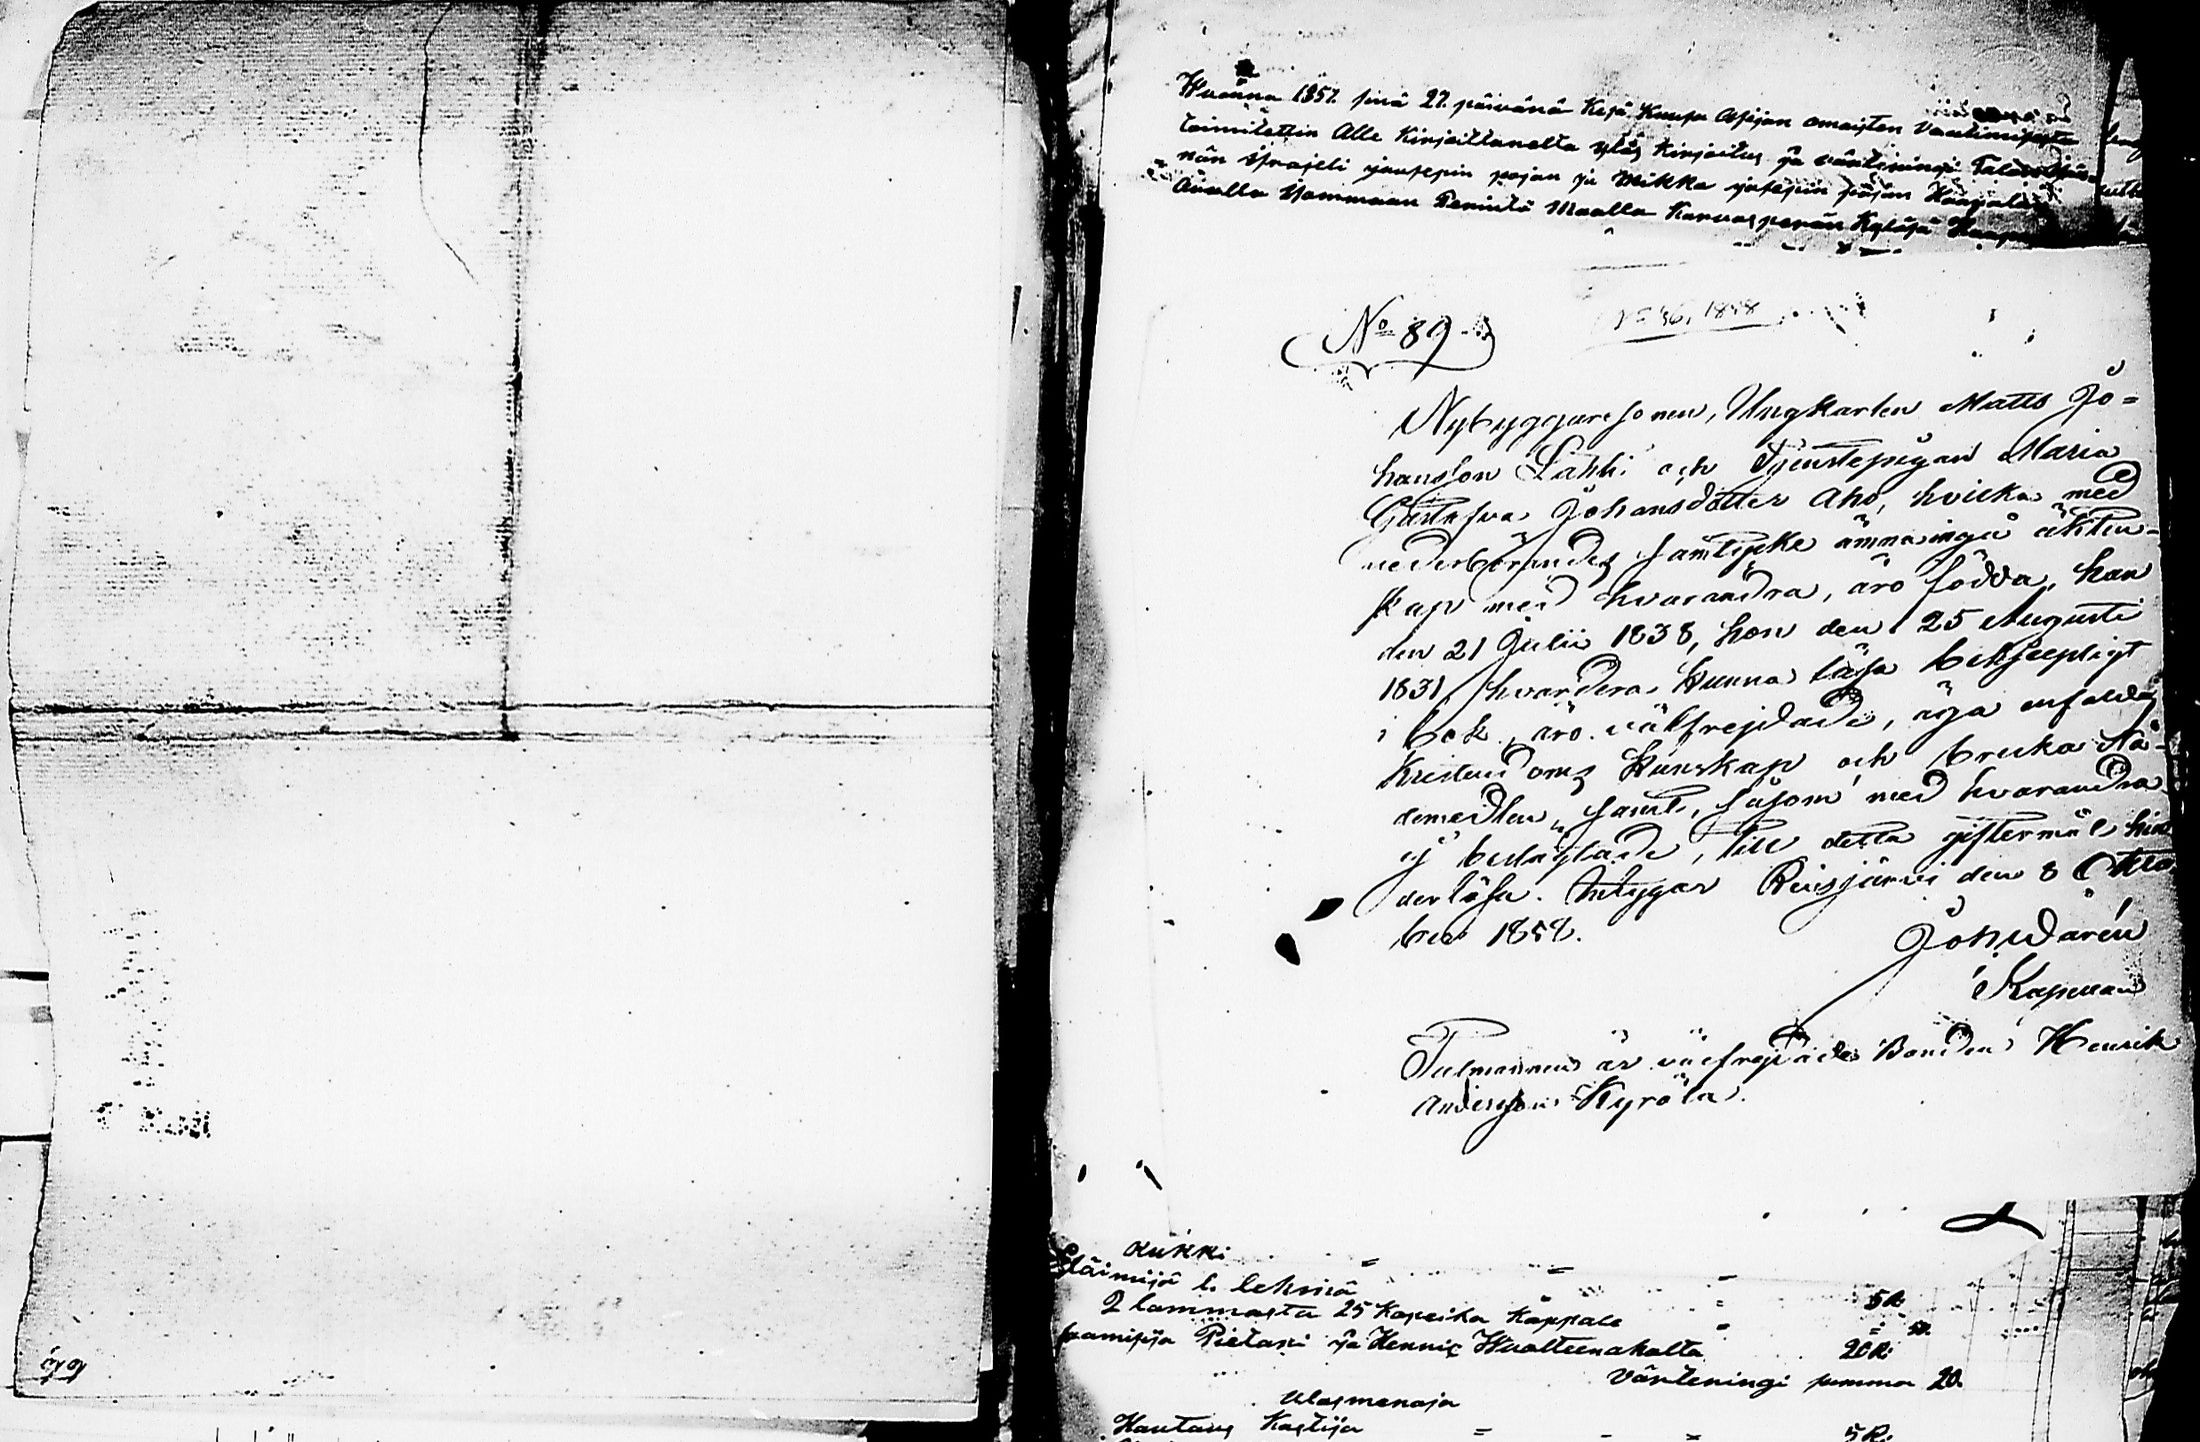 Wuonna 1857. sinä 27. päivänä Kesä Kuusa Asijan omaisten Vaatimisesta
toimitettin Alle Kirjoittanelta ylös Kirjoitus ja värteningi
nän Israjeli juusepin pojan ja Mikka jusepin pojan
Awalla Hommaan Perintö Maalla Karvasperän Kyläsä
No 89
No 46, 1858
Nybyggaresonen, Ungkarlen Matts Jo=
hansson Lahti och Tjenstepigan Maria
Gustafva Johansdotter Aho, hvilka med
vederbörandes samtycke ämna ingå äkten-
skap med hvarandra, äro födda, han
den 21 Julii 1838, hon den 25 Augusti
1831, hvardera kunna läsa beskjeppligt
i bok, äro välfrejdade, äga enfaldig
Kristendoms Kunskap och bruka Nå-
demedlen, samt, såsom med hvarandra
ej beslägtade, till detta giftermål hin
derlösa. Intygar Reisjärvi den 8 Okto
ber 1858.
Joh. Udarén
Kapellan
Talmannen är välfrejdade Bonden Henrik
Andersson Kyrölä.
kukki
Eläimijä 1. lehmä 5 R
2 lammasta 25 Kopeika Kappale " 50.
saamisija Pietari ja Hennic Wuolteenahalta 20 R
Värteningi summa 20.
Ulosmenoja
Hautaus Kostija 5 R: